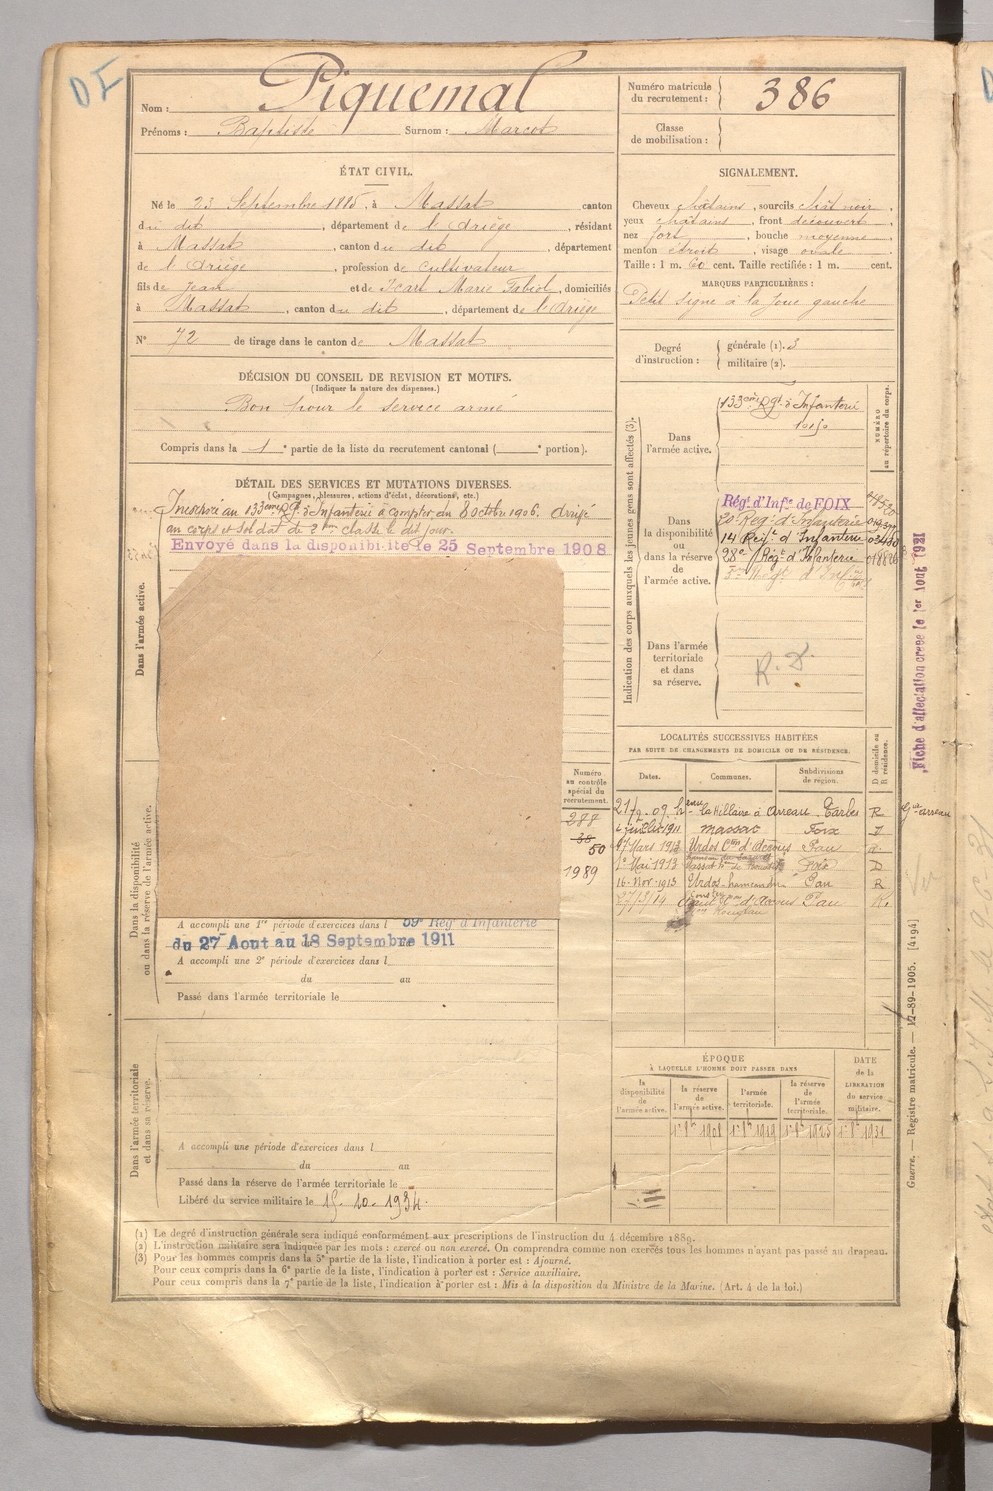 DI
Nom : Piquemal
Prénoms : Baptiste Surnom : Marcot
Numéro matricule du recrutement : 386
Classe de mobilisation :
ÉTAT CIVIL.
Né le 23 Septembre 1885, à Massat canton
du dit, département de l'Ariège, résidant
à Massat, canton du dit, département
de l'Ariège, profession de cultivateur
fils de Jean et de Icart Marie, domiciliés
à Massat, canton du dit, département de l'Ariège
N° 72 de tirage dans le canton de Massat
SIGNALEMENT.
Cheveux châtains, sourcils chât noir,
yeux châtains, front découvert,
nez fort, bouche moyenne,
menton étroit, visage ovale
Taille : 1 m. 60 cent. Taille rectifiée : 1 m. cent.
MARQUES PARTICULIÈRES :
Petit signe à la joue gauche
Degré d'instruction : générale (1). 3
militaire (2).
DÉCISION DU CONSEIL DE REVISION ET MOTIFS.
(Indiquer la nature des dispenses.)
Bon pour le service armé
Compris dans la 1e partie de la liste du recrutement cantonal (e portion).
DÉTAIL DES SERVICES ET MUTATIONS DIVERSES.
(Campagnes, blessures, actions d'éclat, décorations, etc.)
Incorporé au 133eme Rgt d'Infanterie à compter du 8 Octobre 1906. Arrivé
au corps et soldat de 2eme classe le dit jour.
Envoyé dans la disponibilité le 25 Septembre 1908
Dans l'armée active.
Dans la disponibilité
ou dans la réserve de l'armée active.
A accompli une 1re période d'exercices dans l 59e Rég d'Infanterie
du 27 Aout au 18 Septembre 1911
A accompli une 2e période d'exercices dans l
du au
Passé dans l'armée territoriale le
Numéro au contrôle spécial du recrutement.
288
38
50
1989
Dans l'armée territoriale
et dans sa réserve.
A accompli une période d'exercices dans l
du au
Passé dans la réserve de l'armée territoriale le
Libéré du service militaire le 15-10-1934.
Indication des corps auxquels les jeunes gens sont affectés (3).
NUMÉRO au répertoire du corps.
Dans l'armée active.
133eme Rgt d'Infanterie
Dans la disponibilité ou dans la réserve de l'armée active.
Régt d'Infie de FOIX
14 Régt d'Infanterie
28e Régt d'Infanterie
Dans l'armée territoriale et dans sa réserve.
R.D.
LOCALITÉS SUCCESSIVES HABITÉES
PAR SUITE DE CHANGEMENTS DE DOMICILE OU DE RÉSIDENCE.
Dates. Communes. Subdivisions de région. D domicile ou R résidence.
Arreau Tarbes R
4 juillet 1911 Massat Foix
17 Mars 1913 Urdos Cton d'Accous Pau
1er Mai 1913 Massat Foix D
16 Nov. 1913 Urdos Pau R
27/3/14 d'Accous Pau R.
ÉPOQUE
À LAQUELLE L'HOMME DOIT PASSER DANS
la disponibilité de l'armée active.
la réserve de l'armée active.
l'armée territoriale.
la réserve de l'armée territoriale.
DATE de la LIBÉRATION du service militaire.
Fiche d'affectation créée le 1er Aout 1921
Guerre. — Registre matricule. — 12-89-1905. [4194]
(1) Le degré d'instruction générale sera indiqué conformément aux prescriptions de l'instruction du 4 décembre 1889.
(2) L'instruction militaire sera indiquée par les mots : exercé ou non exercé. On comprendra comme non exercés tous les hommes n'ayant pas passé au drapeau.
(3) Pour les hommes compris dans la 5e partie de la liste, l'indication à porter est : Ajourné.
Pour ceux compris dans la 6e partie de la liste, l'indication à porter est : Service auxiliaire.
Pour ceux compris dans la 7e partie de la liste, l'indication à porter est : Mis à la disposition du Ministre de la Marine. (Art. 4 de la loi.)